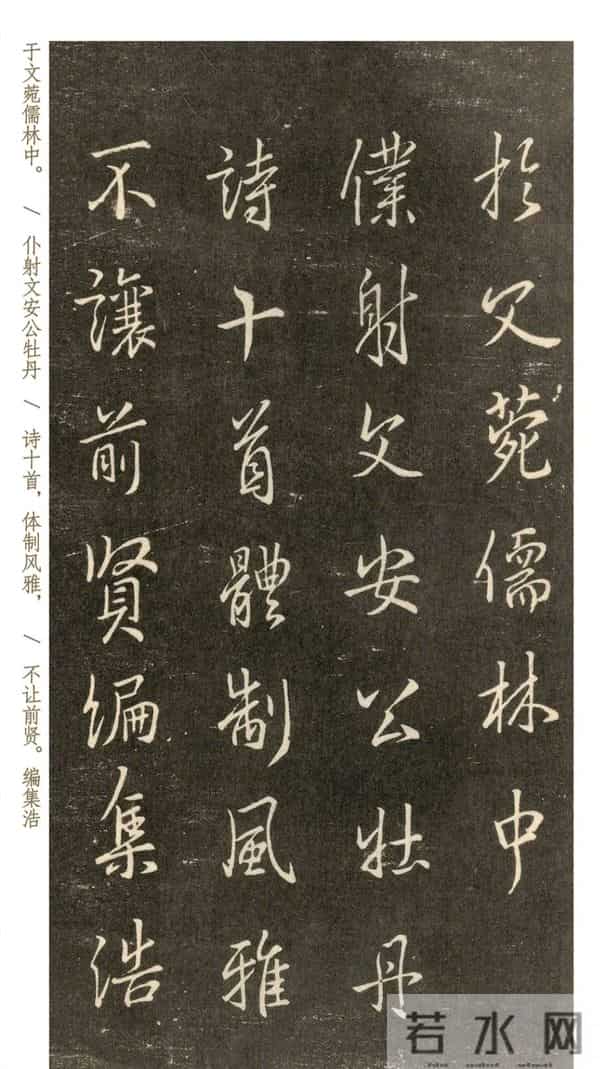 於文菀儒林中
僕射文安公牡丹
詩十首體制風雅
不讓前賢編集浩
于文菀儒林中。 / 仆射文安公牡丹 / 诗十首，体制风雅， / 不让前贤。编集浩
若水网